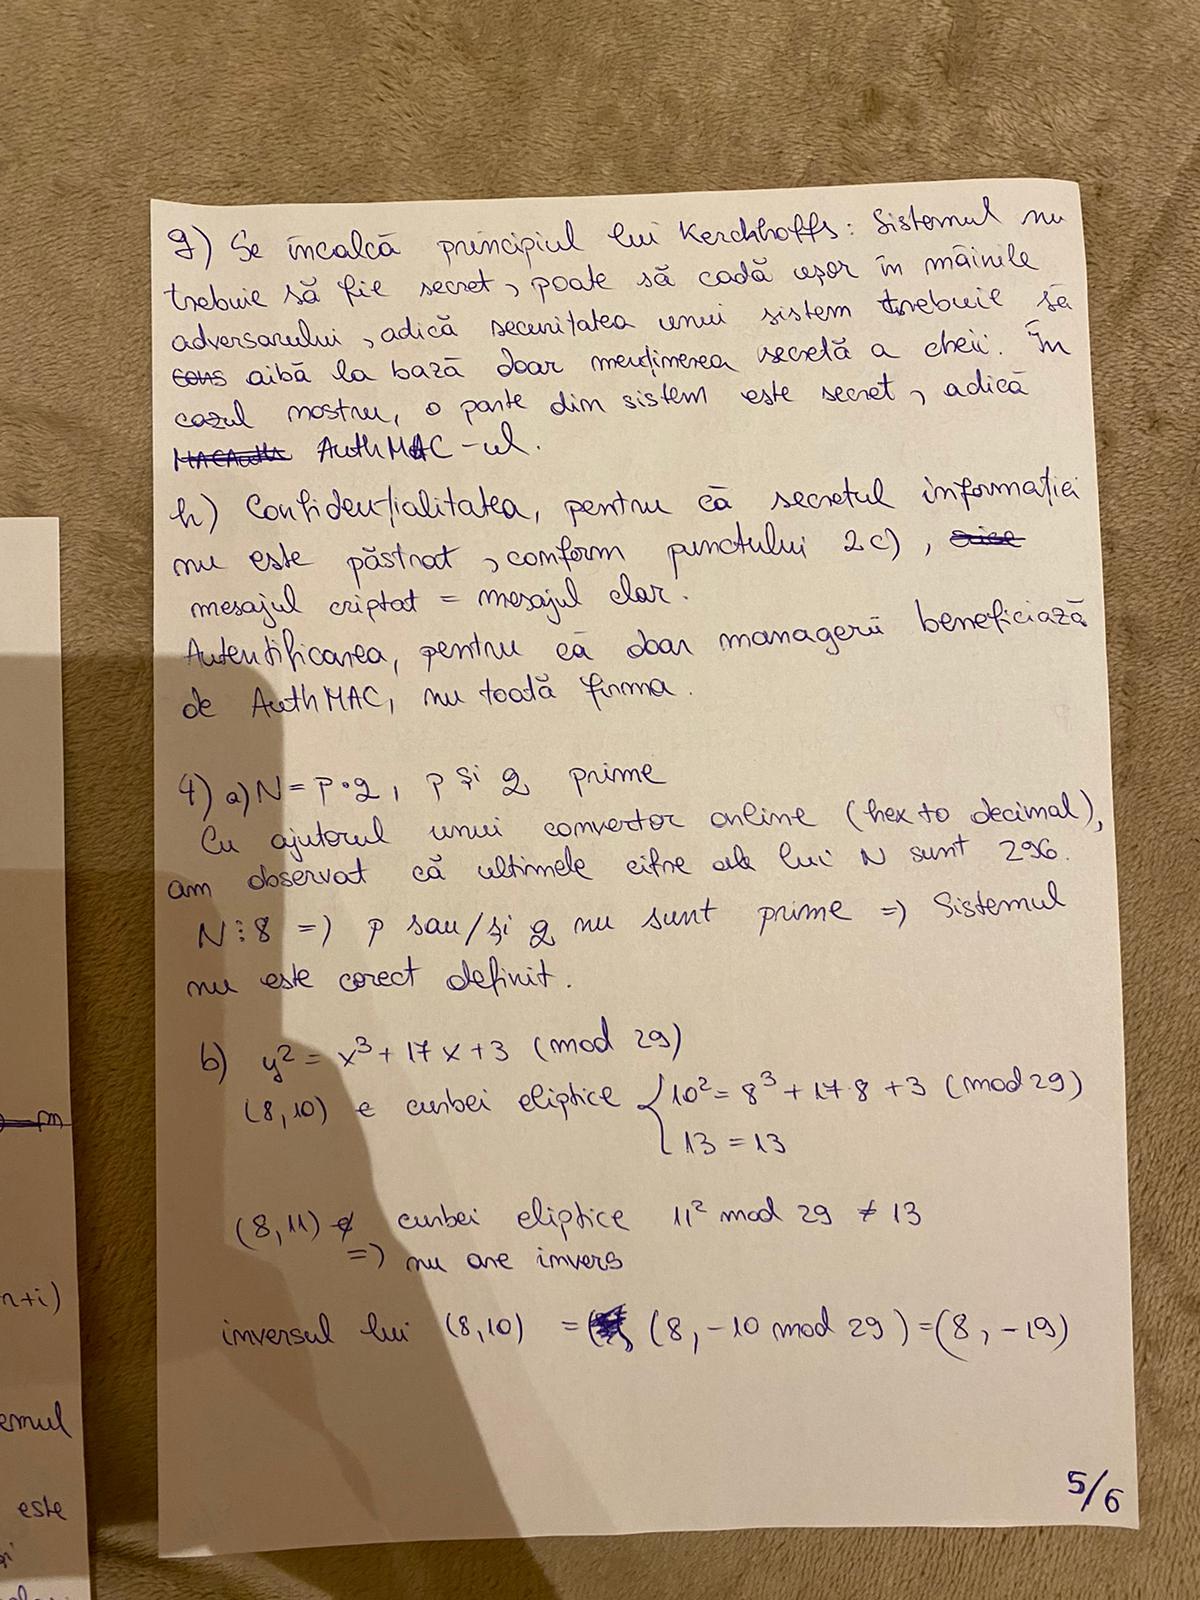 g) Se încalcă principiul lui Kerckhoffs: Sistemul nu
trebuie să fie secret, poate să cadă ușor în mâinile
adversarului, adică securitatea unui sistem trebuie să
cons aibă la bază doar menținerea secretă a cheii. În
cazul nostru, o parte din sistem este secret, adică
MACAuth AuthMAC-ul.
h) Confidențialitatea, pentru că secretul informației
nu este păstrat, conform punctului 2c),
mesajul criptat = mesajul clar.
Autentificarea, pentru că doar managerii beneficiază
de AuthMAC, nu toată firma.
4) a) N = p·q, p și q prime
Cu ajutorul unui convertor online (hex to decimal),
am observat că ultimele cifre ale lui N sunt 296.
N⋮8 => p sau/și q nu sunt prime => Sistemul
nu este corect definit.
b) y² = x³ + 17x + 3 (mod 29)
(8,10) e curbei eliptice { 10² = 8³ + 17·8 + 3 (mod 29)
13 = 13
(8,11) ∉ curbei eliptice 11² mod 29 ≠ 13
=> nu are invers
inversul lui (8,10) = (8, -10 mod 29) = (8, -19)
5/6
m
n+i)
emul
este
și